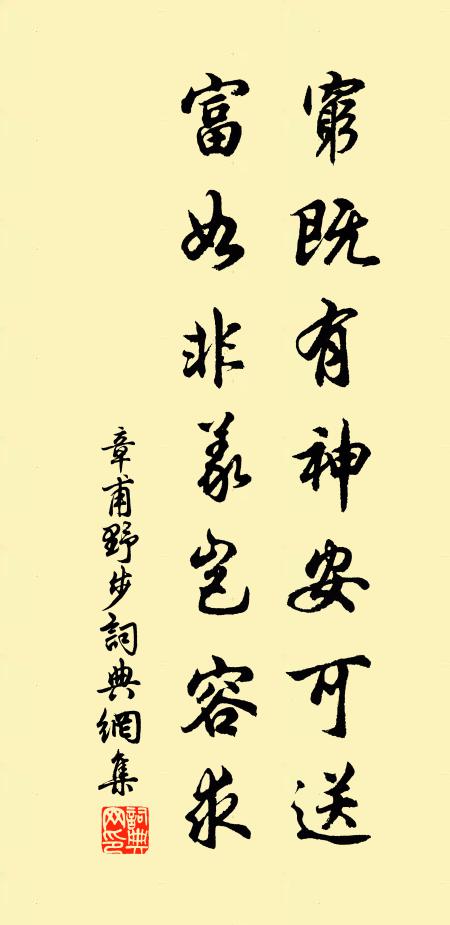 窮既有神安可送
富如非義豈容求
章甫野步詞典網集
詞典
网印